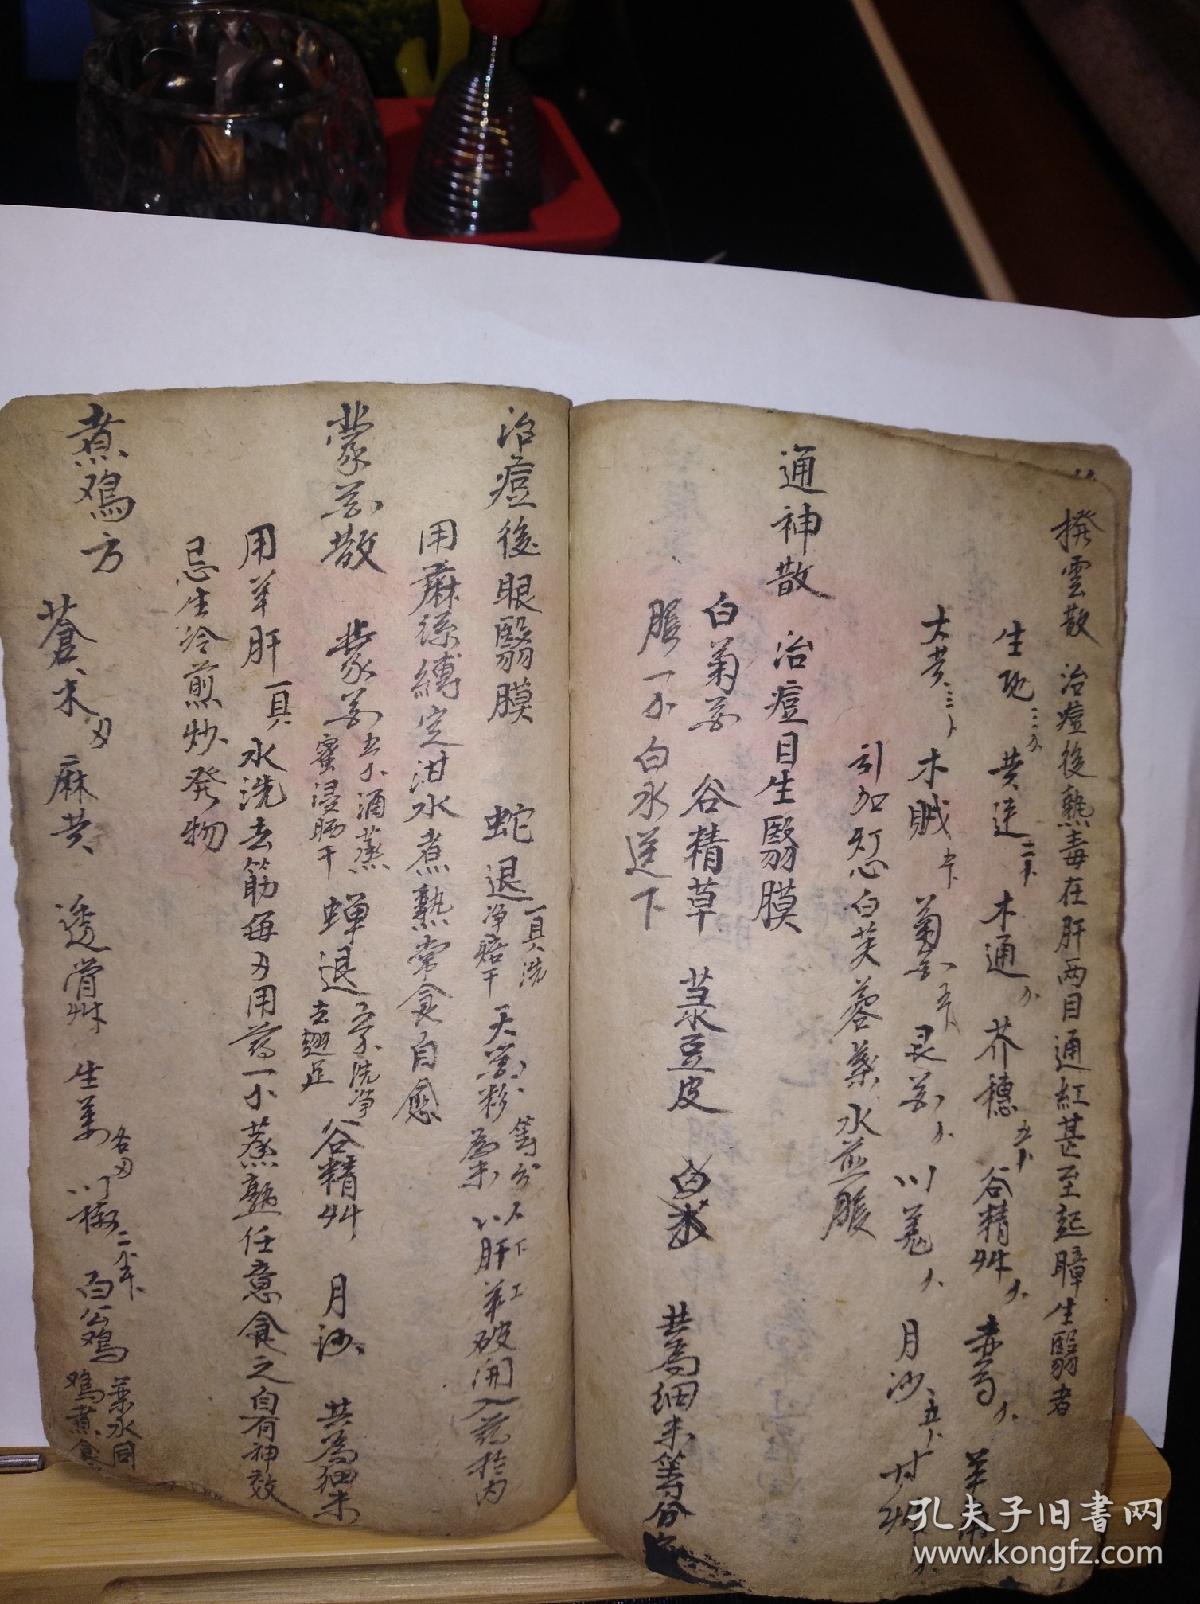 撥雲散 治痘後熱毒在肝两目通紅甚至起瞕生翳者
生地 黄连 木通 芥穗 谷精艸 赤芍
大黄 木贼 菊花 川羗 月沙 甘草
引加灯心白芙蓉葉水煎服
通神散 治痘目生翳膜
白菊花 谷精草 菉豆皮 共為细末等分
服一小白水送下
治痘後眼翳膜 蛇退一具洗净焙干 天花粉等分為末 以肝羊破開入药於内
用麻繇縛定泔水煮熟常食自愈
蒙花散 蒙花酒蒸蜜浸晒干 蝉退洗净去翅足 谷精艸 月沙 共為细末
用羊肝一具水洗去筋每刄用药一小蒸熟任意食之自有神效
忌生冷煎炒發物
煮鸡方
蒼术刄 麻黄 透骨艸 生姜各刄 川椒 白公鸡 藥水同鸡煮食
孔夫子旧书网
www.kongfz.com